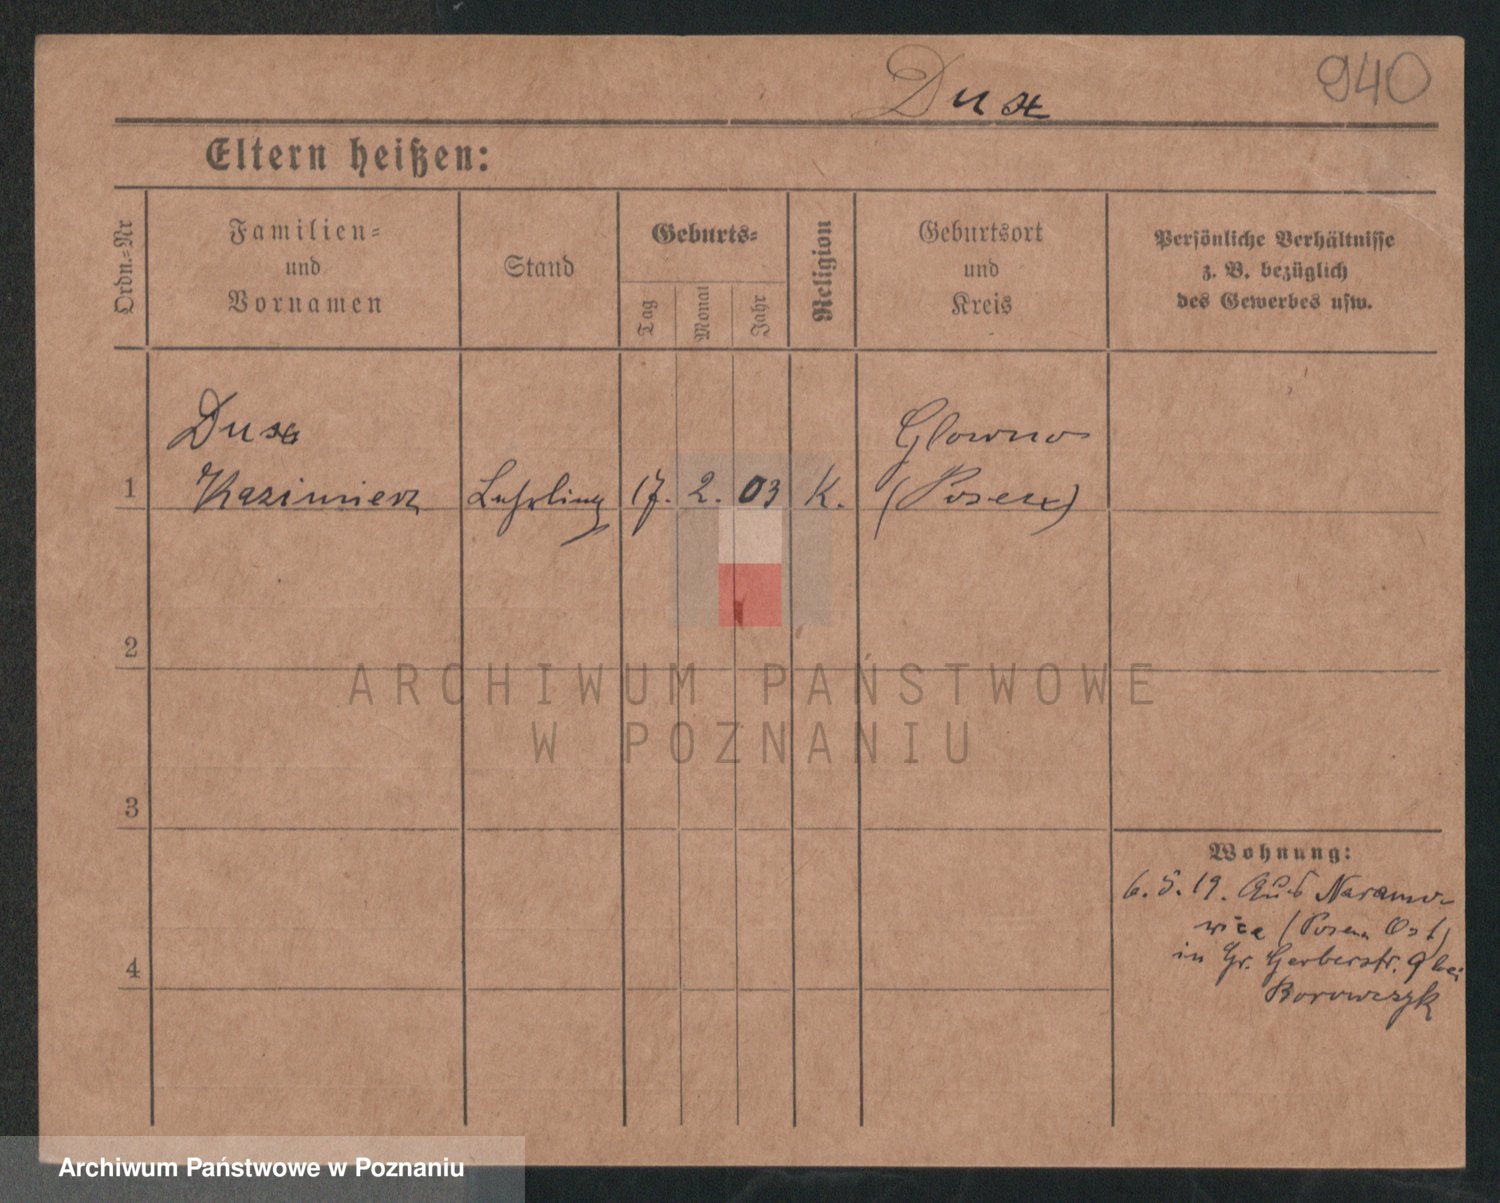 940
Dux
Eltern heißen:
Ordn.-Nr
Familien-
und
Vornamen
Stand
Geburts-
Tag
Monat
Jahr
Religion
Geburtsort
und
Kreis
Persönliche Verhältnisse
z. B. bezüglich
des Gewerbes usw.
Dux
Glowno
1 Kazimierz Lehrling 17. 2. 03 K. (Posen)
2
ARCHIWUM PAŃSTWOWE
W POZNANIU
3
Wohnung:
6.5.19. Aus Naramo-
wice (Posen Ost)
in Gr. Gerberstr. 9 bei
4
Borowczyk
Archiwum Państwowe w Poznaniu